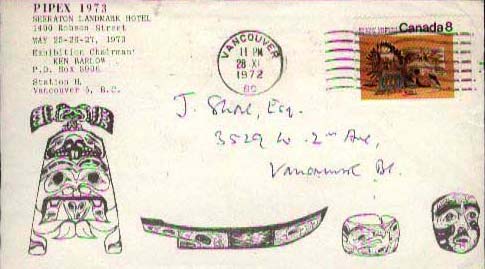 PIPEX 1973
SHERATON LANDMARK HOTEL
1400 Robson Street
MAY 25-26-27, 1973
Exhibition Chairman:
KEN BARLOW
P.O. Box 8906
Station H,
Vancouver 5, B.C.
VANCOUVER
11 PM
28 XI
1972
BC
Canada 8
J. Esq.
3529 W. 2nd Ave,
Vancouver BC.